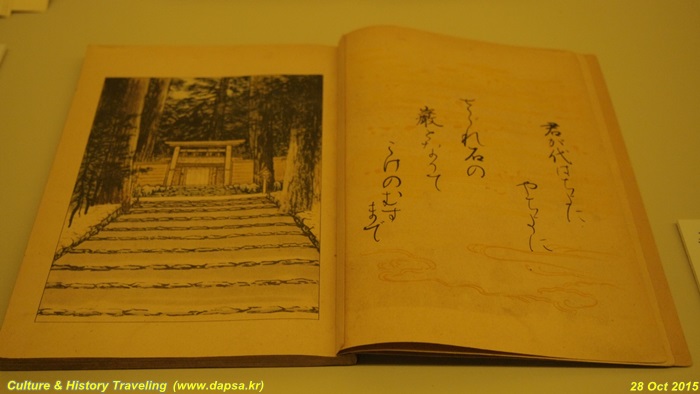 君が代はちよに
やちよに
さゝれ石の
巌となりて
こけのむす
まで
Culture & History Traveling (www.dapsa.kr)
28 Oct 2015